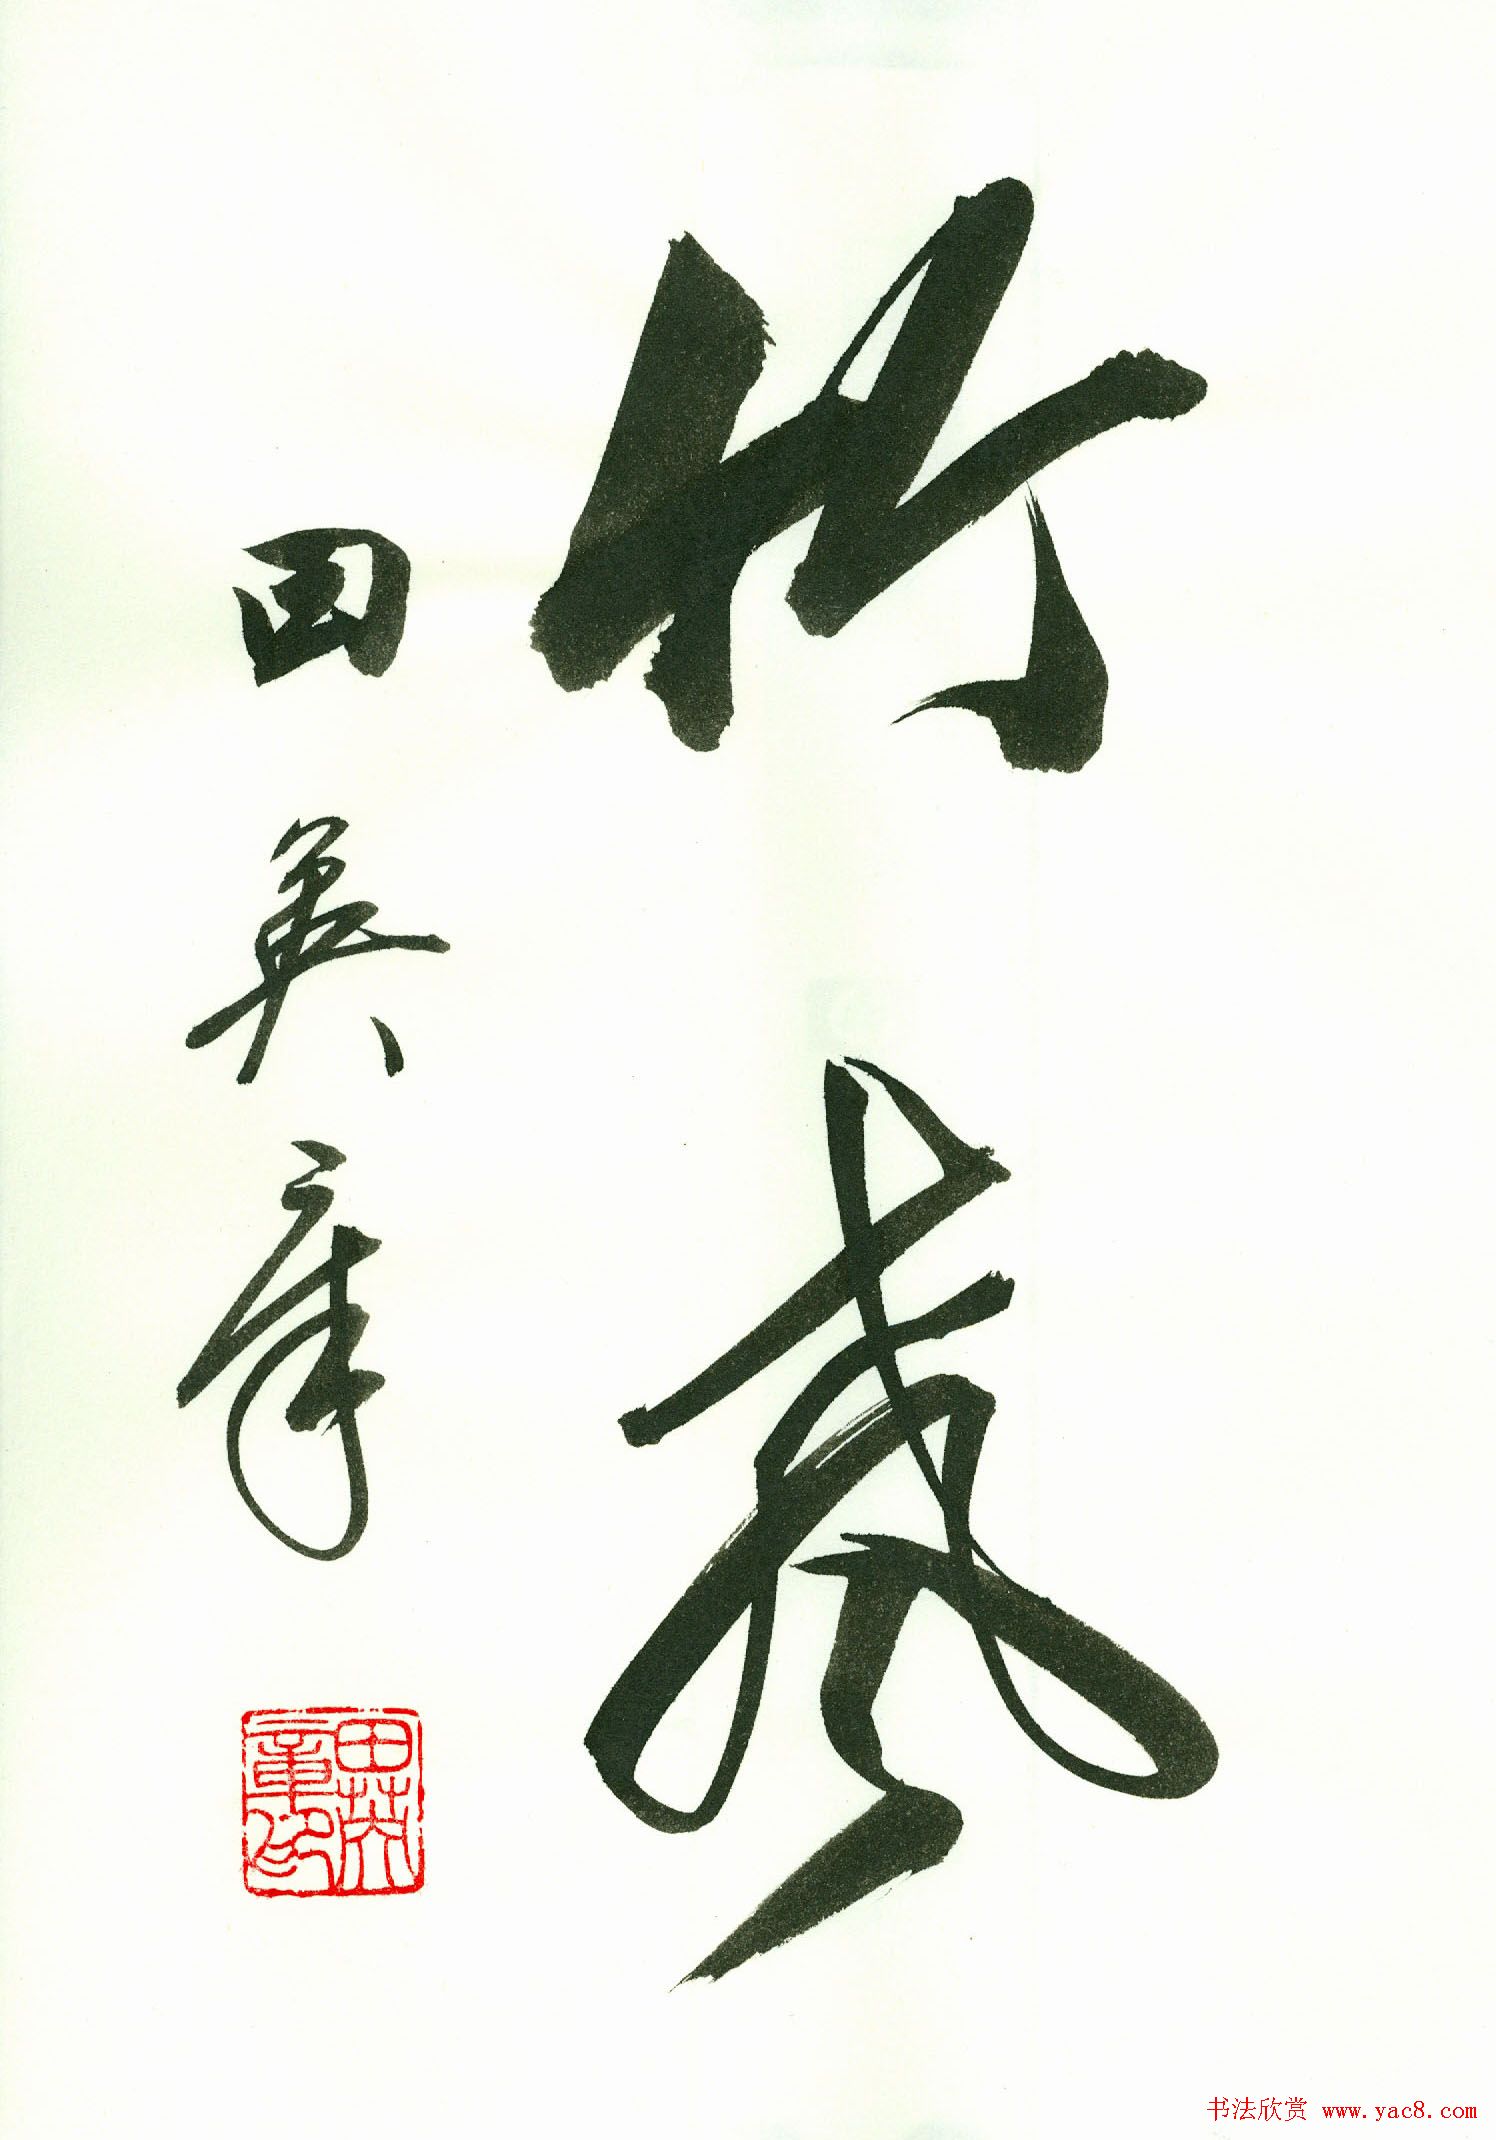 竹藝
田英章
田英章印
书法欣赏 www.yac8.com